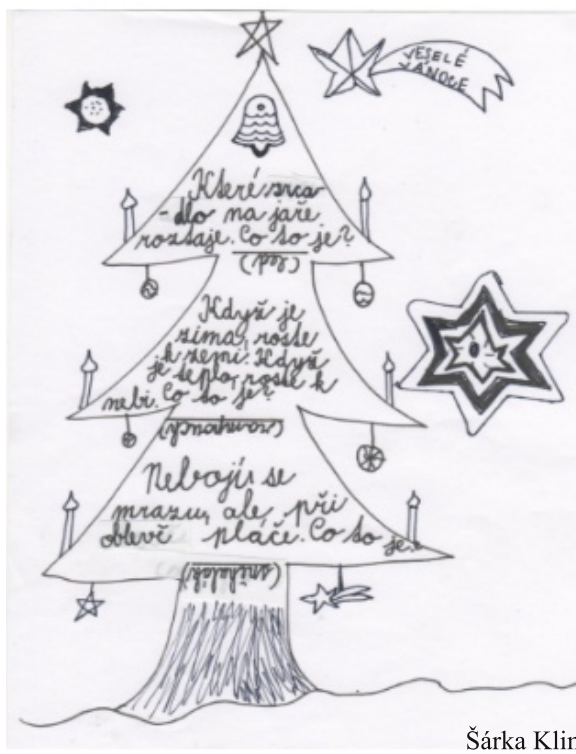 VESELÉ
VÁNOCE
Které zrca
-dlo na jaře
roztaje. Co to je?
(led)
Když je
zima, roste
k zemi. Když
je teplo, roste k
nebi. Co to je?
(rampouch)
Nebojí se
mrazu, ale při
oblevě pláče. Co to je?
(sněhulák)
Šárka Klin